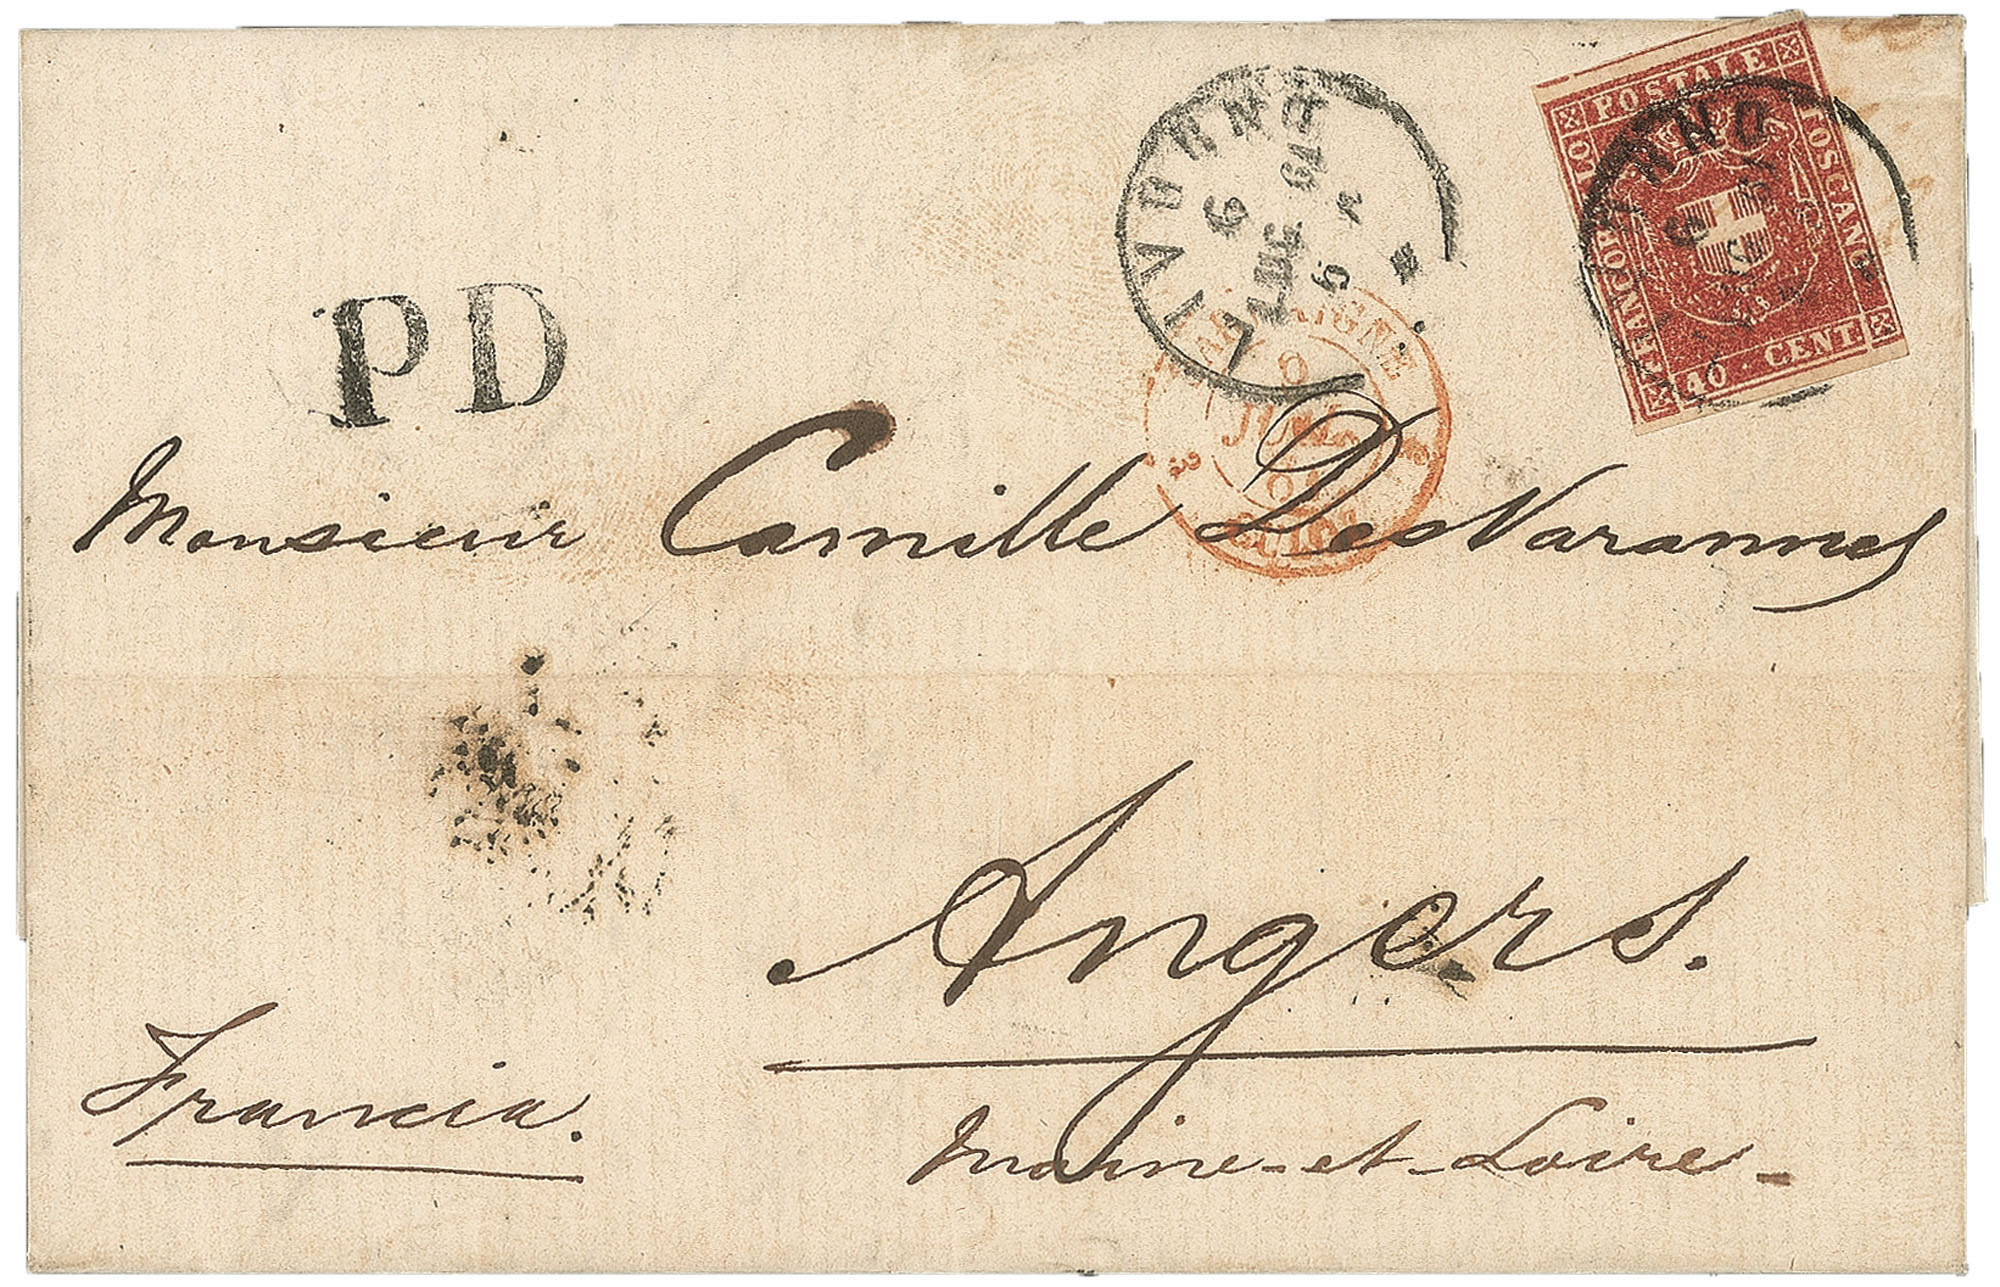 FRANCOBOLLO POSTALE TOSCANO
40 . CENT
LIVORNO
6
LUG
61
PD
8
JUIL
61
Monsieur Camille DesVarannes
Angers.
Francia.
Maine-et-Loire-